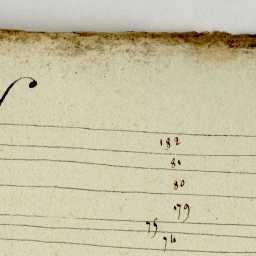 182
80
80
79
75
76